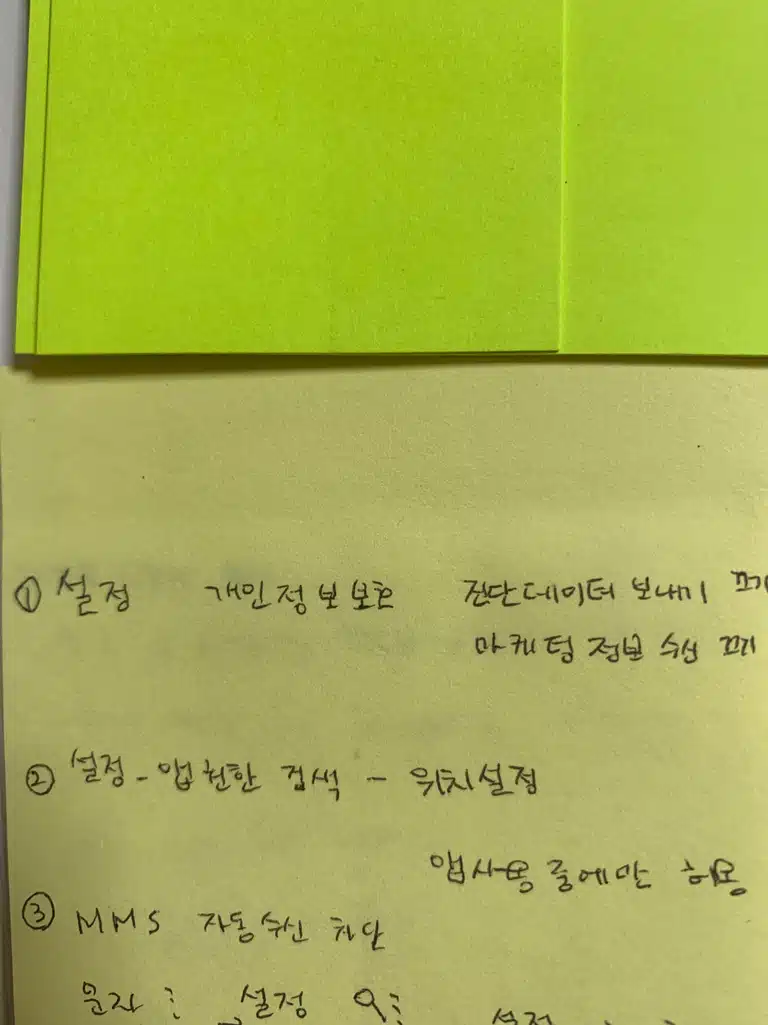 ① 설정 개인정보보호 진단데이터 보내기 끄기
마케팅 정보 수신 끄기
② 설정 - 앱권한 검색 - 위치설정
앱사용 중에만 허용
③ MMS 자동수신 차단
문자 : 설정
설정